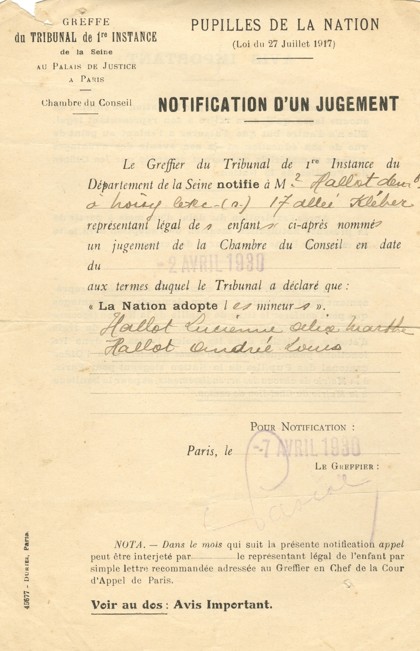 GREFFE
du TRIBUNAL de 1re INSTANCE
de la Seine
AU PALAIS DE JUSTICE
A PARIS
Chambre du Conseil
PUPILLES DE LA NATION
(Loi du 27 Juillet 1917)
NOTIFICATION D'UN JUGEMENT
Le Greffier du Tribunal de 1re Instance du
Département de la Seine notifie à M Hallot
à Noisy le Sec (S.) 17 allée Kléber
représentant légal des enfants ci-après nommés
un jugement de la Chambre du Conseil en date
du -2 AVRIL 1930
aux termes duquel le Tribunal a déclaré que :
« La Nation adopte les mineurs ».
Hallot Lucienne Alix Marthe
Hallot André Louis
POUR NOTIFICATION :
Paris, le -7 AVRIL 1930
LE GREFFIER :
NOTA. — Dans le mois qui suit la présente notification appel
peut être interjeté par le représentant légal de l'enfant par
simple lettre recommandée adressée au Greffier en Chef de la Cour
d'Appel de Paris.
Voir au dos : Avis Important.